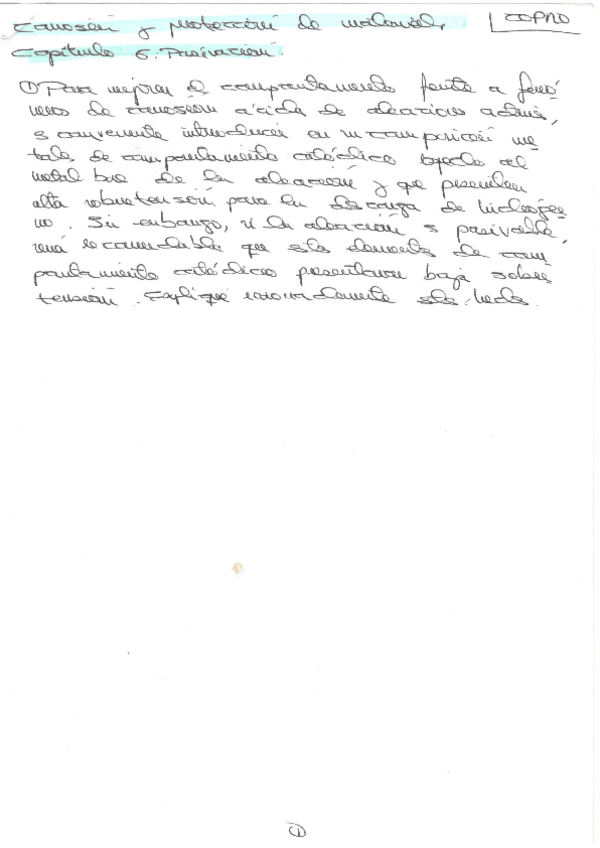 Corrosión y protección de materiales. COPRO
Capítulo 6. Pasivación.
① Para mejorar el comportamiento frente a fenó
menos de corrosión ácida de aleaciones activas,
es conveniente introducir en su composición me
tales de comportamiento catódico respecto al
metal base de la aleación y que presenten
alta sobretensión para la descarga de hidróge
no. Sin embargo, si la aleación es pasivable,
será recomendable que estos elementos de com
portamiento catódico presentaran baja sobre
tensión. Explique razonadamente este hecho.
①